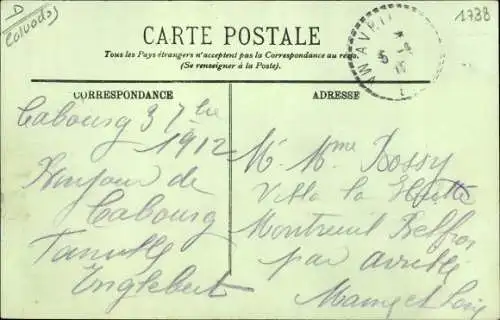 D
Calvados
1788
CARTE POSTALE
Tous les Pays étrangers n'acceptent pas la Correspondance au recto
(Se renseigner à la Poste).
CORRESPONDANCE
ADRESSE
Cabourg 3 7bre
1912
Bonjour de
Cabourg
Famille
Englebert
Mr Mme Rossy
Villa la
Montreuil Belfroi
par Avrillé
Maine et Loire
AVRIL